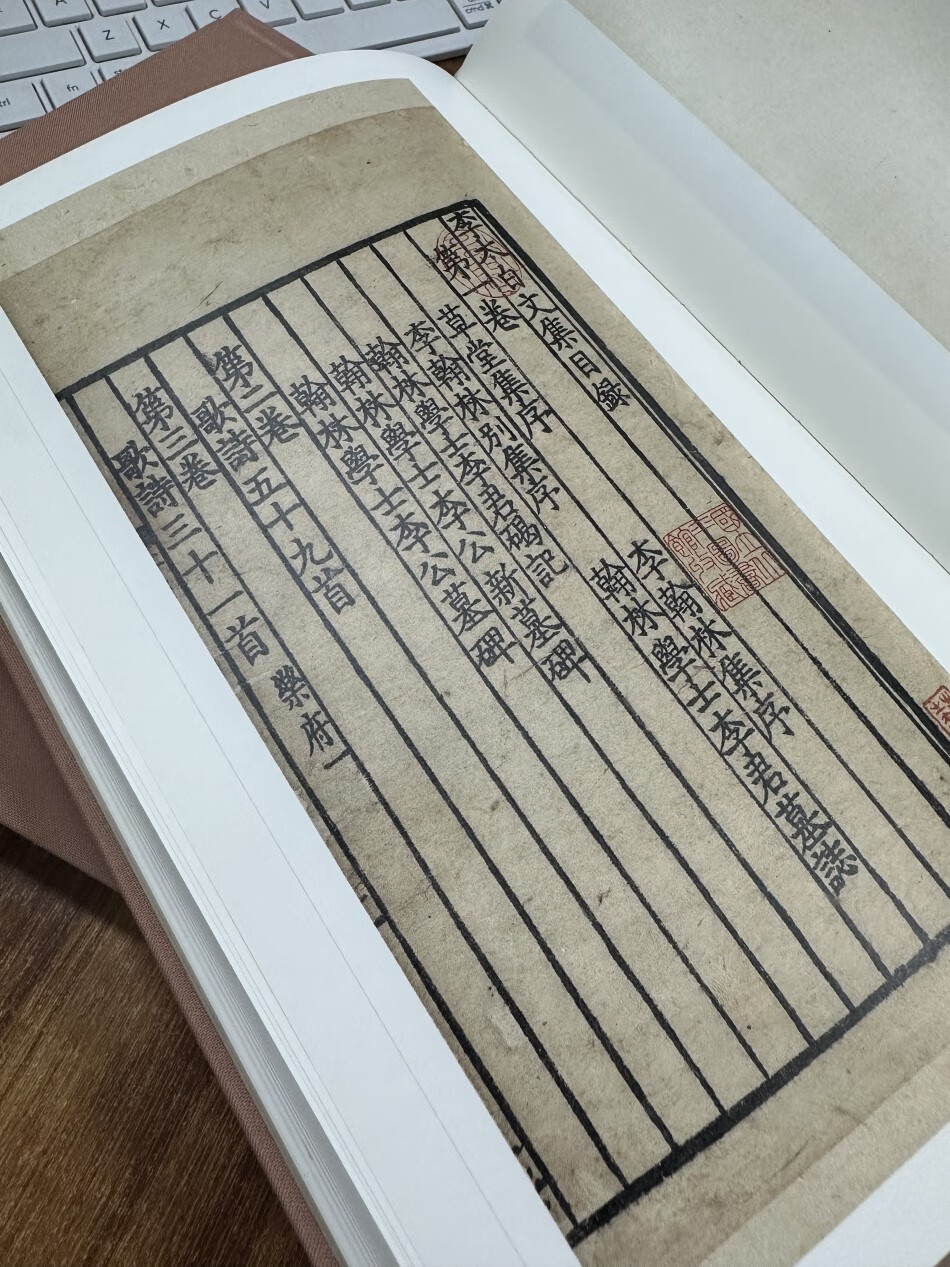 Z X C V
fn
李太白文集目録
第一卷
草堂集序 李翰林集序
李翰林別集序 翰林學士李君墓誌
翰林學士李君碣記
翰林學士李公新墓碑
翰林學士李公墓碑
第二卷
歌詩五十九首
第三卷
歌詩三十一首 樂府一